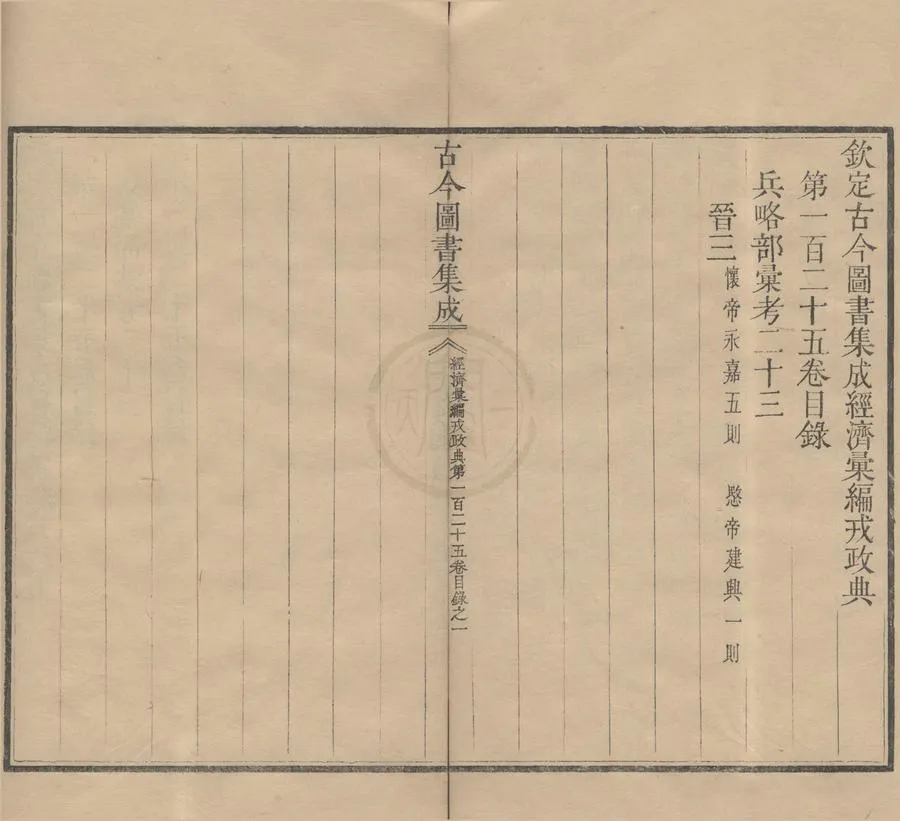 欽定古今圖書集成經濟彙編戎政典
第一百二十五卷目錄
兵略部彙考二十三
晉三懷帝永嘉五則 愍帝建興一則
古今圖書集成
經濟彙編戎政典第一百二十五卷目錄之一